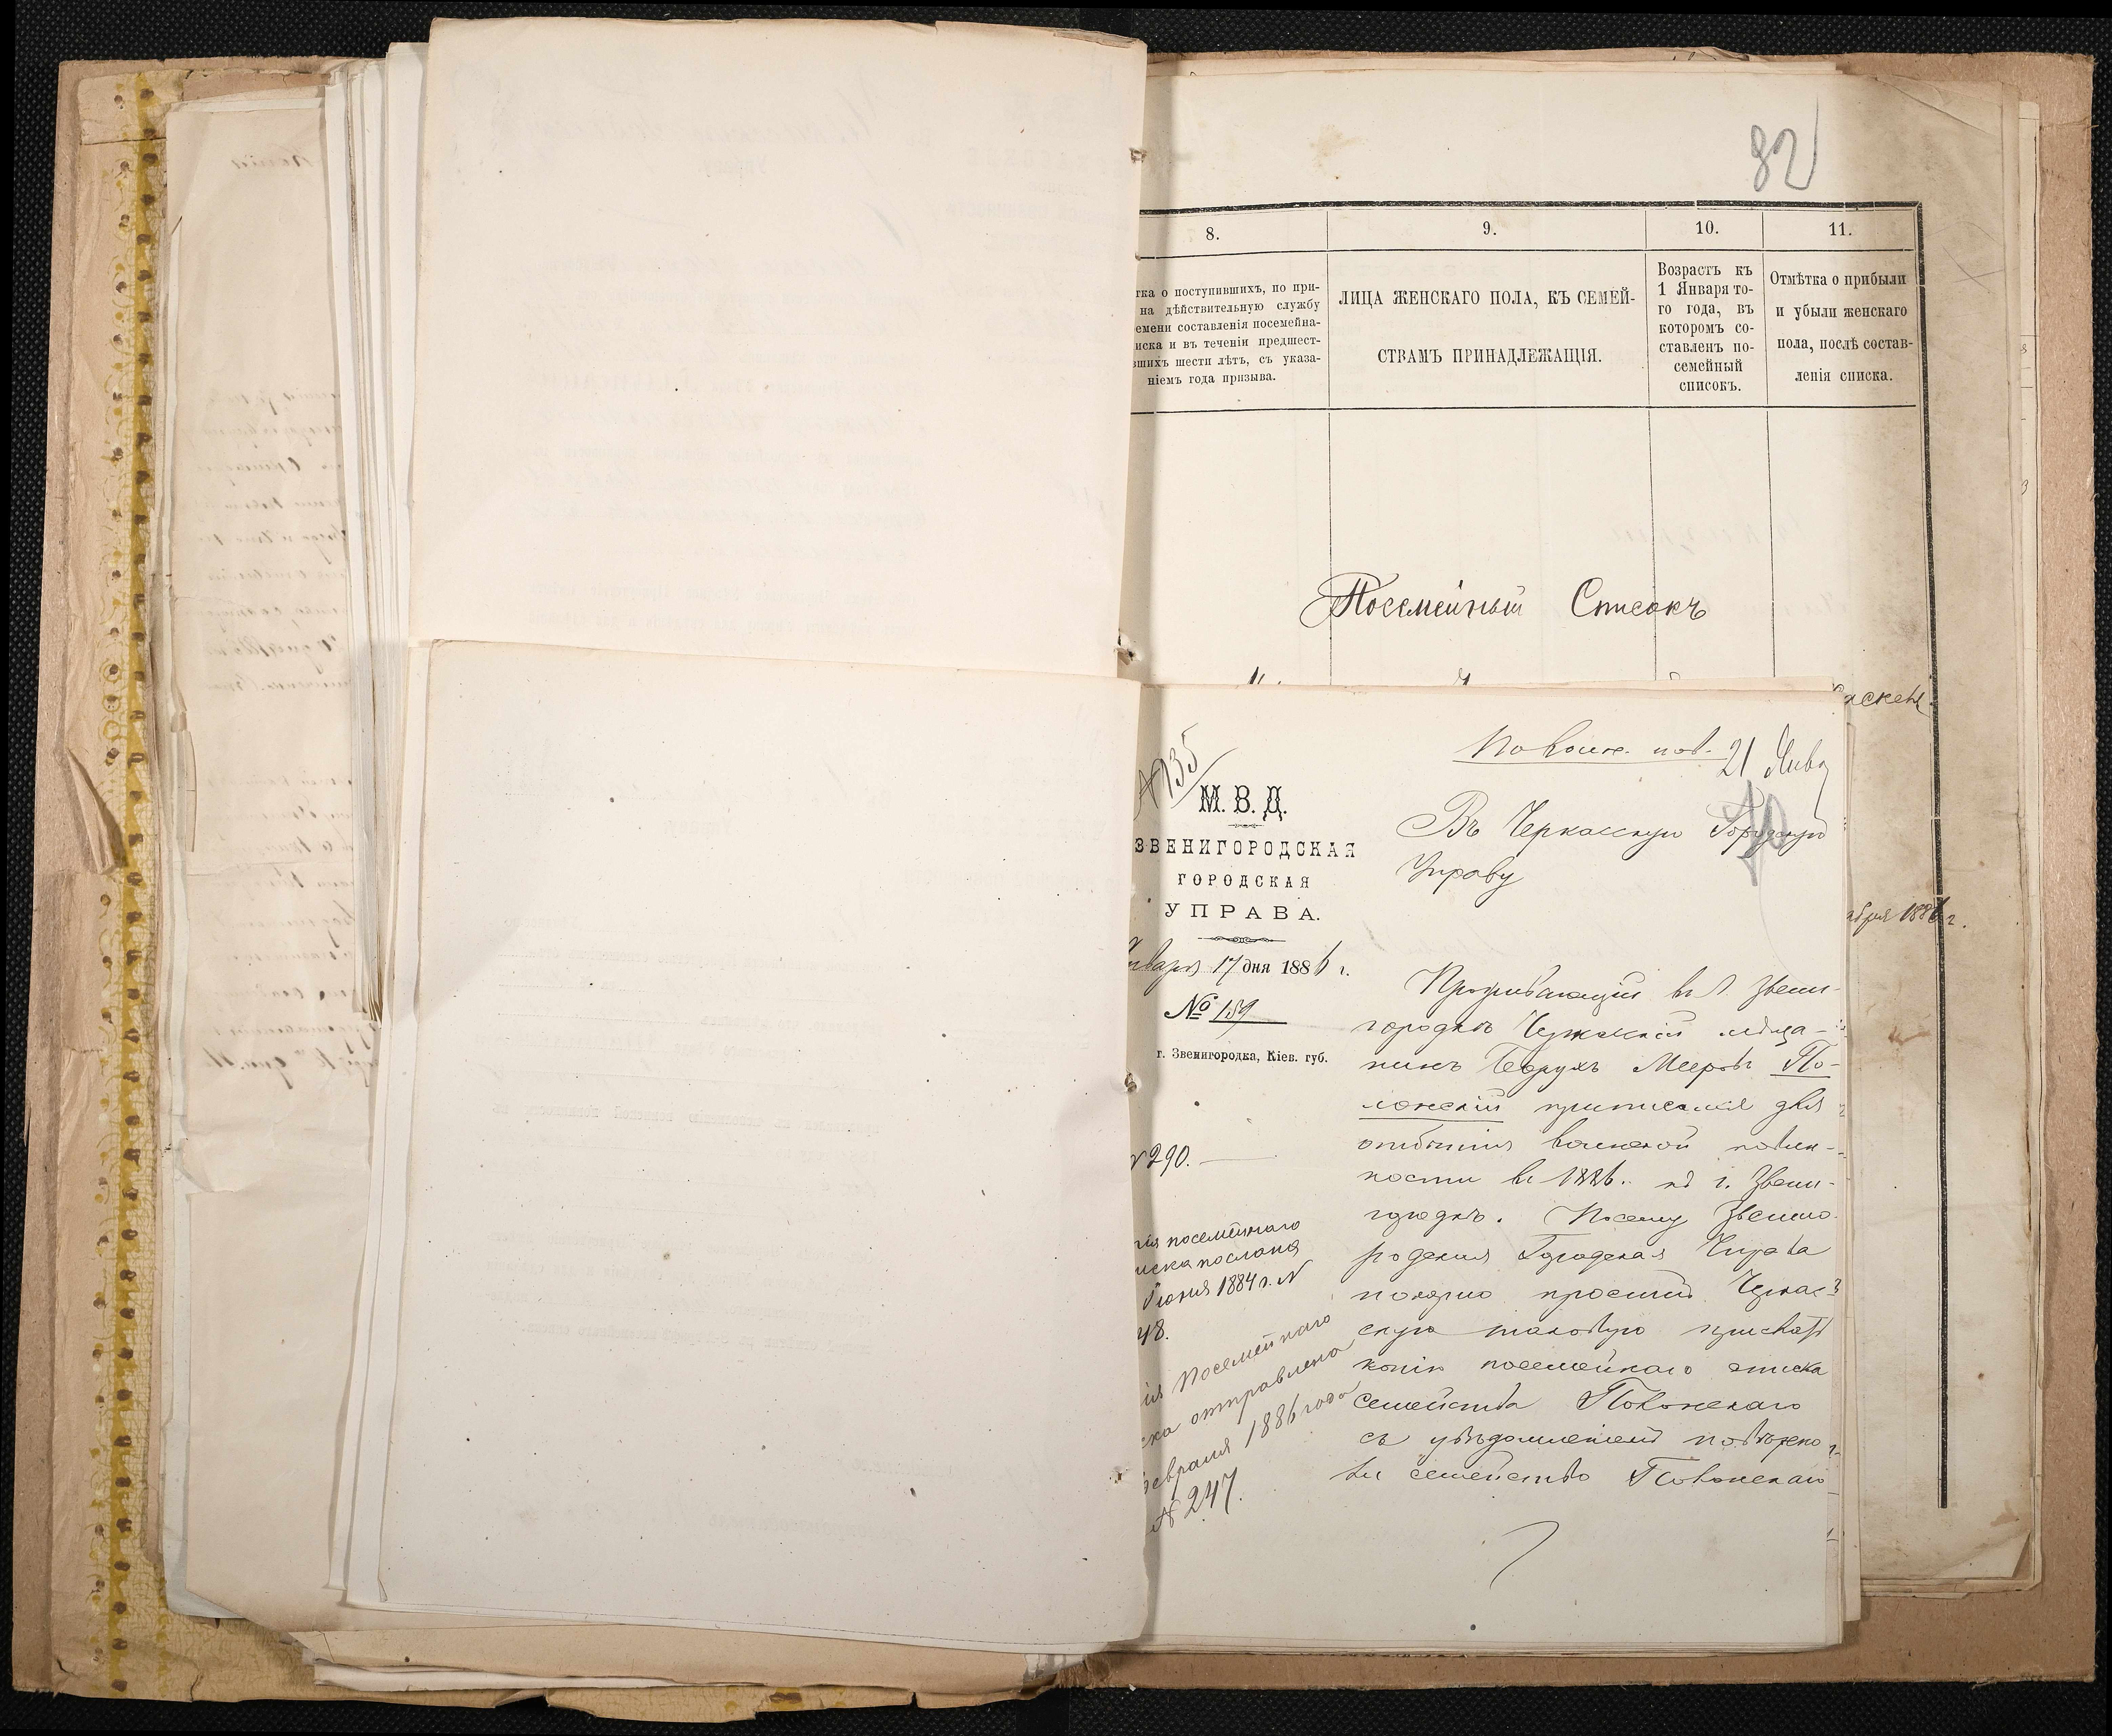 82
8.
9.
10.
11.
тка о поступившихъ, по при-
на дѣйствительную службу
емени составленія посемейна-
иска и въ теченіи предшест-
вшихъ шести лѣтъ, съ указа-
ніемъ года призыва.
ЛИЦА ЖЕНСКАГО ПОЛА, КЪ СЕМЕЙ-
СТВАМЪ ПРИНАДЛЕЖАЩІЯ.
Возрастъ къ
1 Января то-
го года, въ
которомъ со-
ставленъ по-
семейный
списокъ.
Отмѣтка о прибыли
и убыли женскаго
пола, послѣ состав-
ленія списка.
Посемейный Списокъ
абря 1886 г.
№ 135
М. В. Д.
ЗВЕНИГОРОДСКАЯ
ГОРОДСКАЯ
УПРАВА.
Января 17 дня 1886 г.
№ 159
г. Звенигородка, Кіев. губ.
290.
ія посемейнаго
иска послана
Іюня 1884 г. N
48.
ія Посемейнаго
ска отправлена
евраля 1886 года
N 247.
По воин. пов.
21 Янва
Въ Черкасскую Городскую
Управу
Проживающій въ г. Звени-
городкѣ Черкасскій мѣща-
нинъ Борухъ Мееровъ По-
лонскій приписался для
отбытія воинской повин-
ности въ 1886. по г. Звени-
городкѣ. Посему Звениго
родская Городская Управа
покорно проситъ Черкас-
скую таковую прислать
копію посемейнаго списка
семейства Полонскаго
съ увѣдомленіемъ
ли семейство Полонскаго